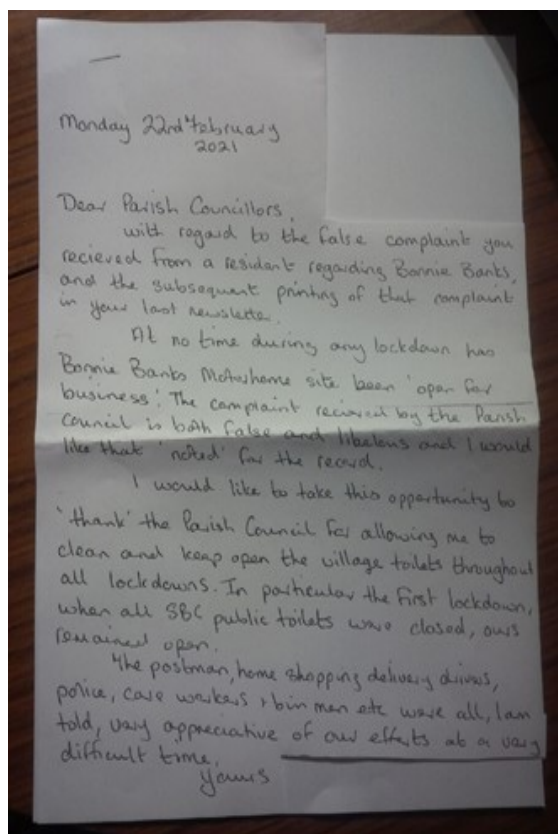 Monday 22nd February
2021
Dear Parish Councillors,
with regard to the false complaint you
recieved from a resident regarding Bonnie Banks,
and the subsequent printing of that complaint
in your last newsletter.
At no time during any lockdown has
Bonnie Banks Motorhome site been 'open for
business'. The complaint recieved by the Parish
Council is both false and libelous and I would
like that 'noted' for the record.
I would like to take this opportunity to
'thank' the Parish Council for allowing me to
clean and keep open the village toilets throughout
all lockdowns. In particular the first lockdown,
when all SBC public toilets were closed, ours
remained open.
The postman, home shopping delivery drivers,
police, care workers + bin men etc were all, I am
told, very appreciative of our efforts at a very
difficult time.
Yours